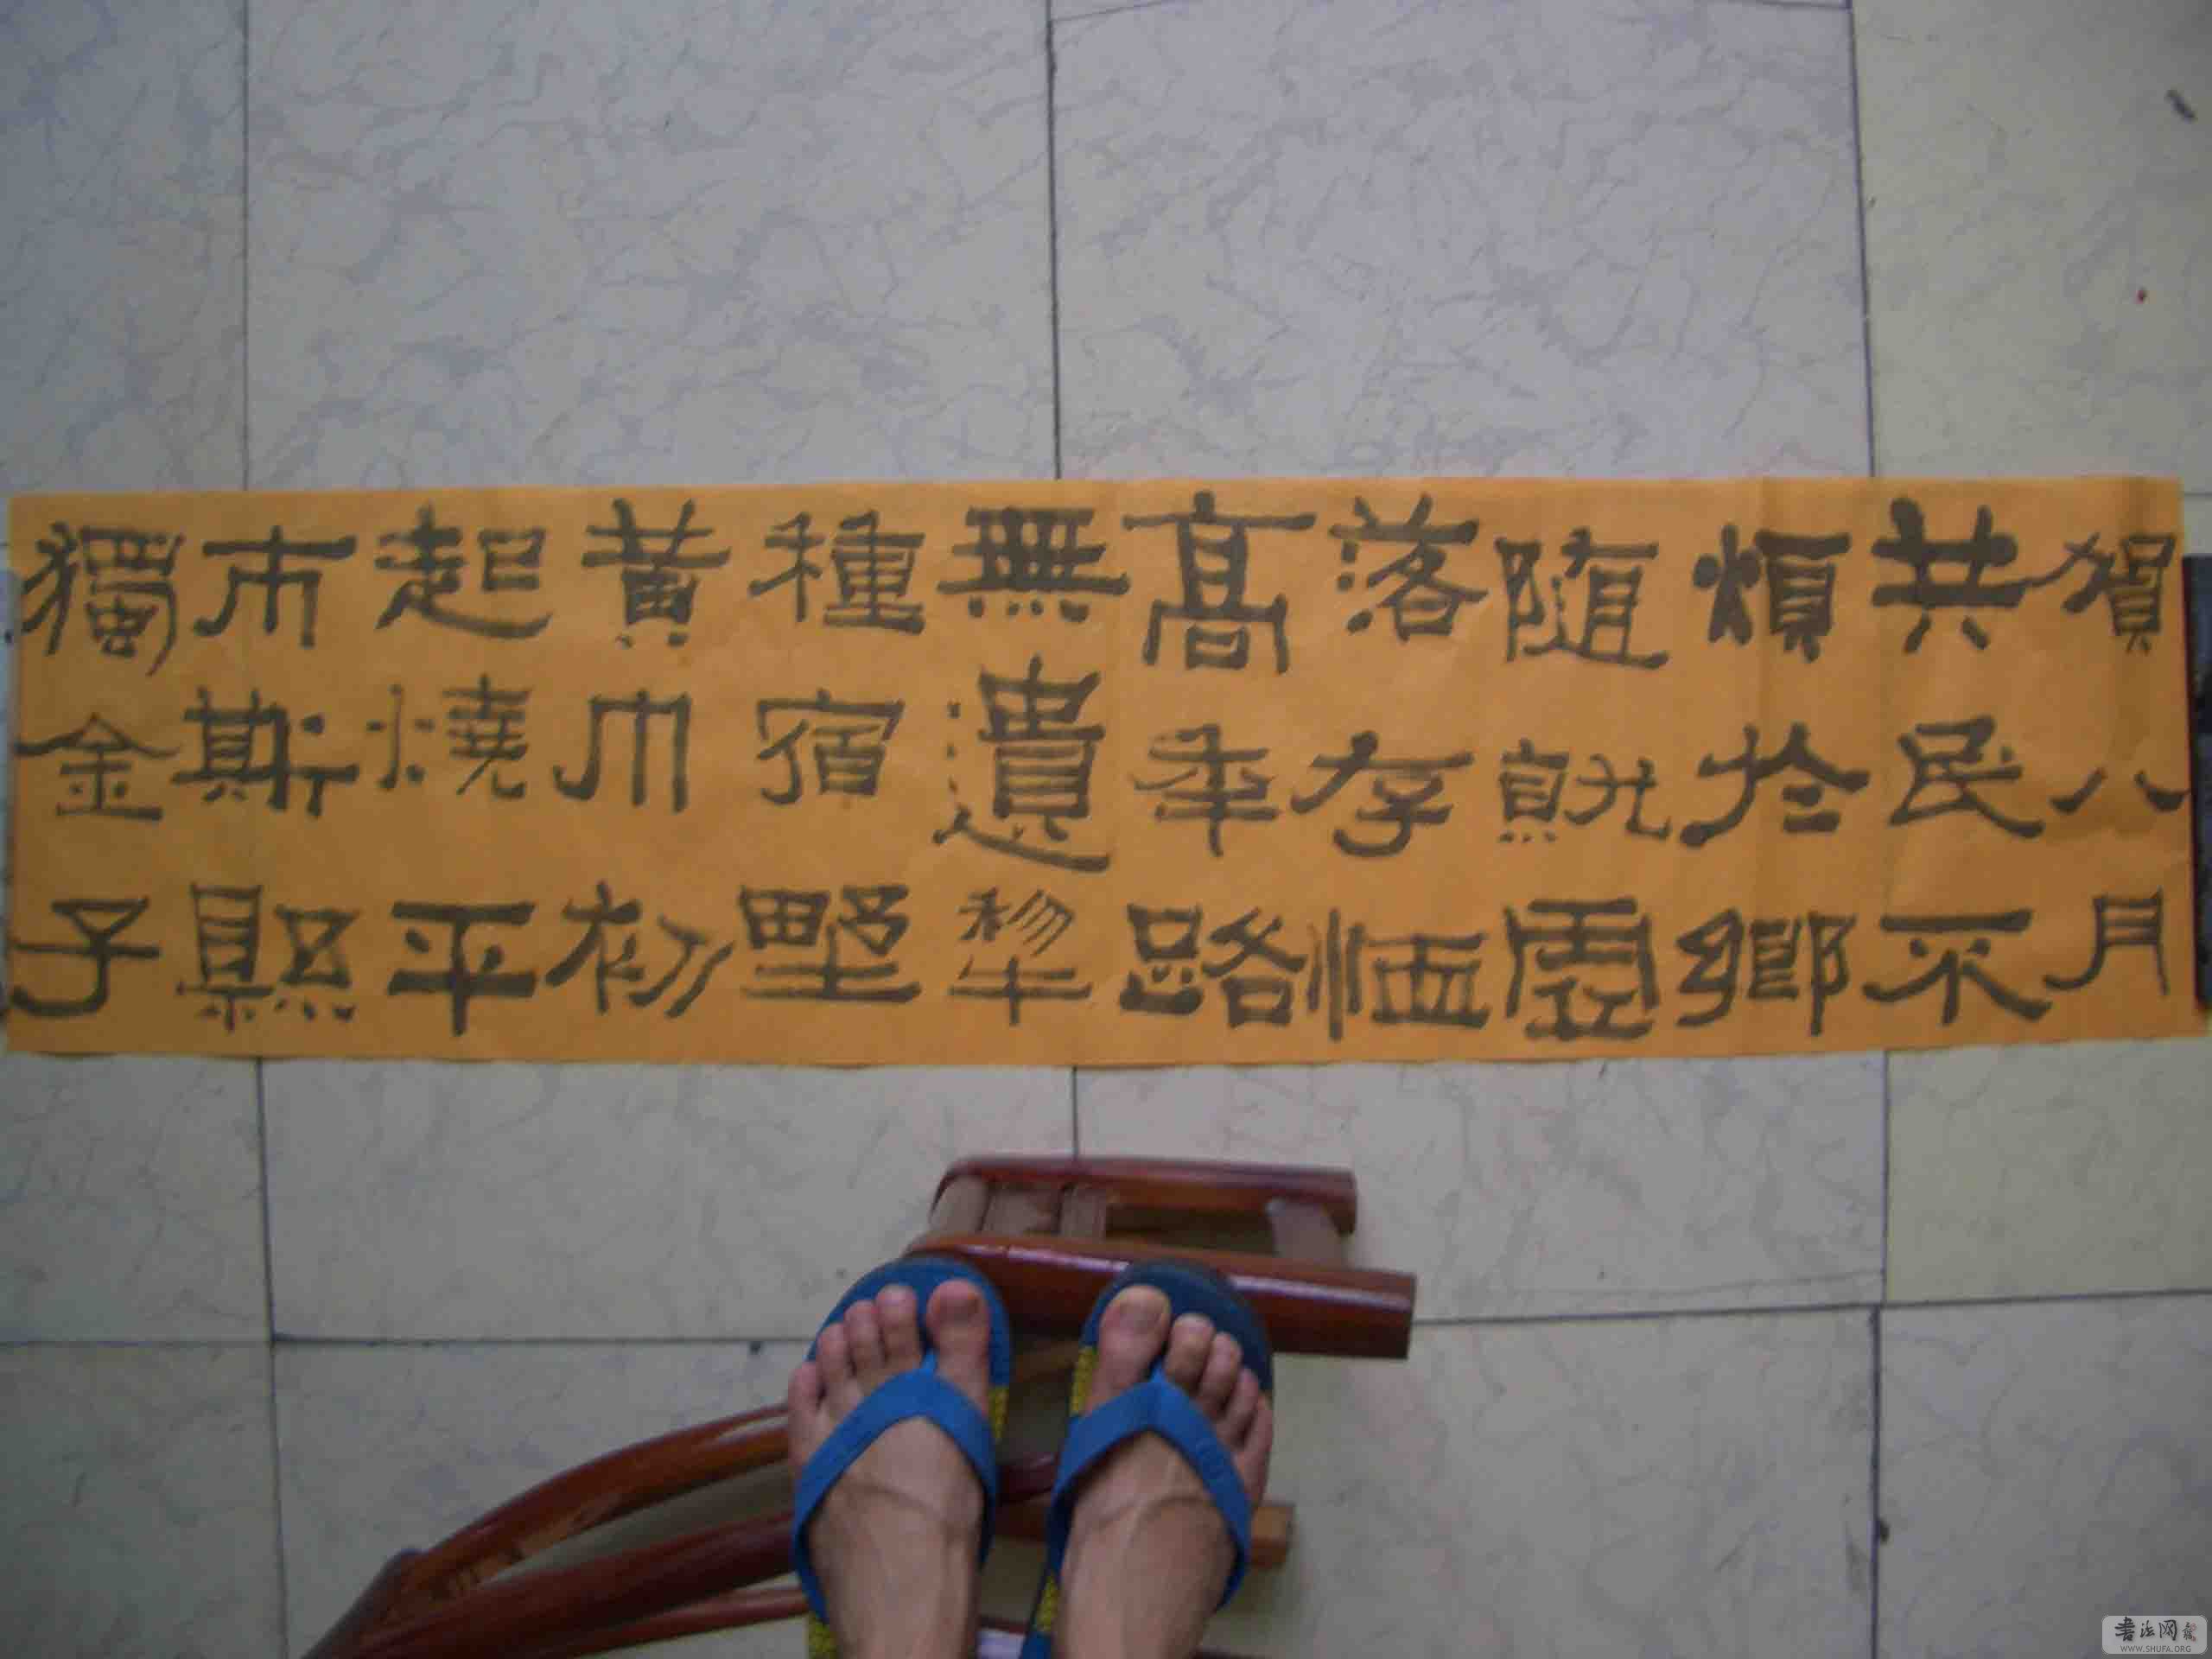 賀八月
共民不
煩於鄉
隨就虛
落存恤
高年路
無遺犂
種宿野
黃巾初
起燒平
市斯縣
獨金子
书法网
WWW.SHUFA.ORG